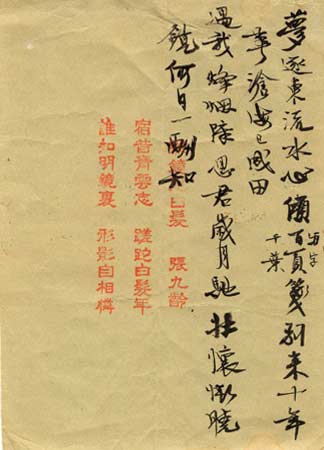 夢逐東流水心傾百頁箋別来十年
万字
千葉
事滄海已成田
過我烽烟際思君歲月馳壯懷慚曉
鏡何日一酬知
白髮 張九齡
宿昔青雲志 蹉跎白髮年
誰知明鏡裏 形影自相憐